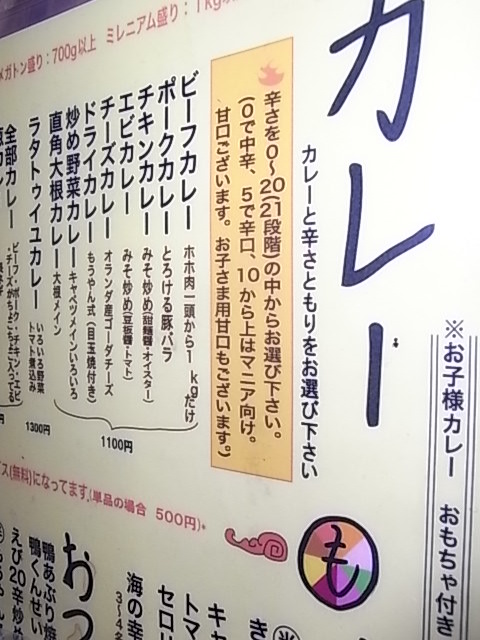 ※お子様カレー おもちゃ付き
カレー
カレーと辛さともりをお選び下さい
辛さを0〜20(21段階)の中からお選び下さい。
(0で中辛、5で辛口、10から上はマニア向け。
甘口ございます。お子さま用甘口もございます。)
メガトン盛り：700g以上 ミレニアム盛り：1kg
ビーフカレー ホホ肉一頭から1kgだけ
ポークカレー とろける豚バラ
チキンカレー みそ炒め(甜麺醤・オイスター)
エビカレー みそ炒め(豆板醤・トマト)
チーズカレー オランダ産ゴーダチーズ
ドライカレー もうやん式(目玉焼付き)
炒め野菜カレー キャベツメインいろいろ
直角大根カレー 大根メイン
1100円
ラタトゥイユカレー いろいろ野菜トマト煮込み
1300円
全部カレー ビーフ・ポーク・チキン・エビ
・チーズがちょこちょこ入ってる
ス(無料)になってます。(単品の場合 500円)*
も
おつ
海の幸
3〜4名
セロリ
トマ
キャ
き
鴨あぶり焼
鴨くんせい
えび20辛炒め